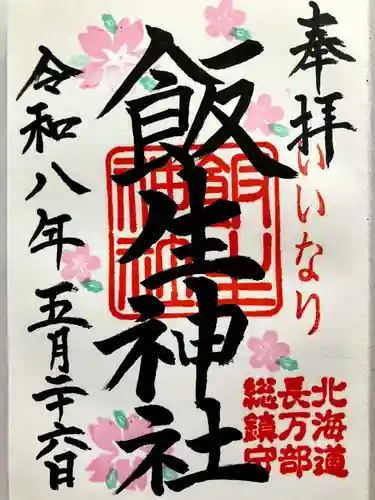 奉拝
いいなり
北海道
長万部
総鎮守
飯生神社
飯生神社
令和八年五月二十六日